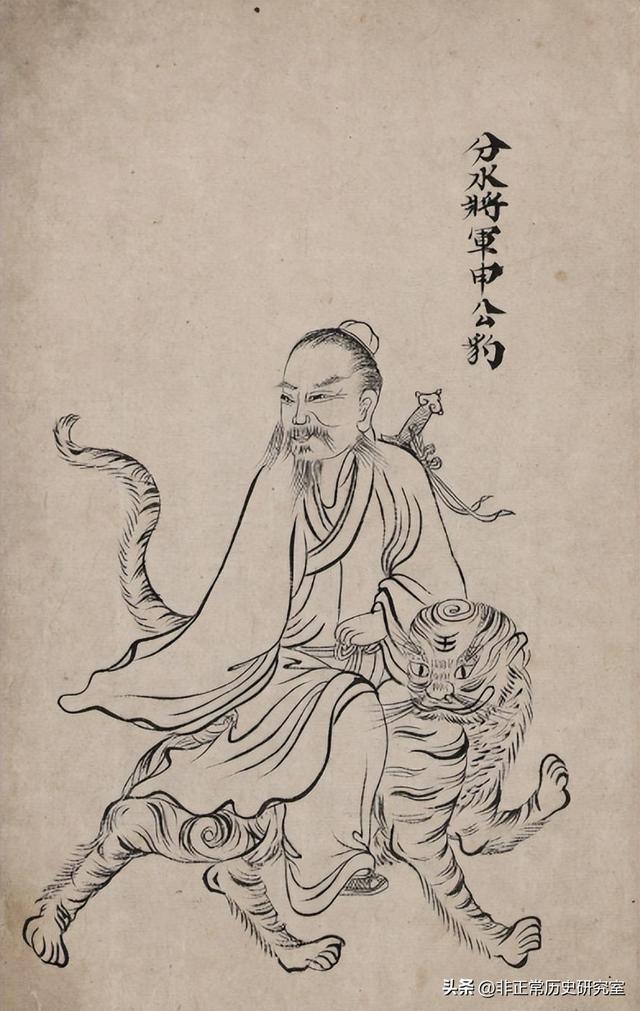 分水將軍申公豹
头条 @非正常历史研究室